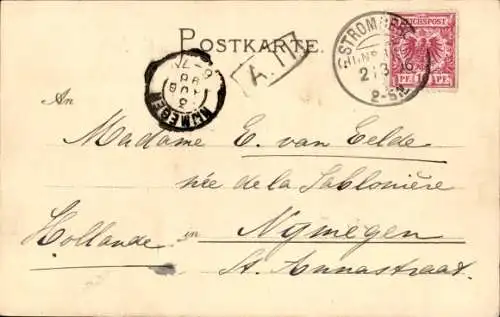 POSTKARTE.
STROMBERG
2 8
2-3N
REICHSPOST
PF PF
NIJMEGEN
AUG
98
An
Madame E. van Eelde
née de la Sablonière
Hollande in Nymegen
St. Annastraat.